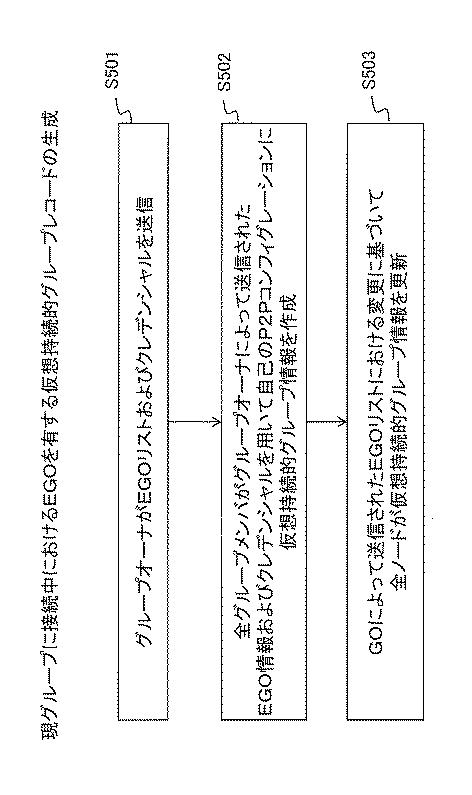 現グループに接続中におけるEGOを有する仮想持続的グループレコードの生成
S501
グループオーナがEGOリストおよびクレデンシャルを送信
S502
全グループメンバがグループオーナによって送信された
EGO情報およびクレデンシャルを用いて自己のP2Pコンフィグレーションに
仮想持続的グループ情報を作成
S503
GOによって送信されたEGOリストにおける変更に基づいて
全ノードが仮想持続的グループ情報を更新